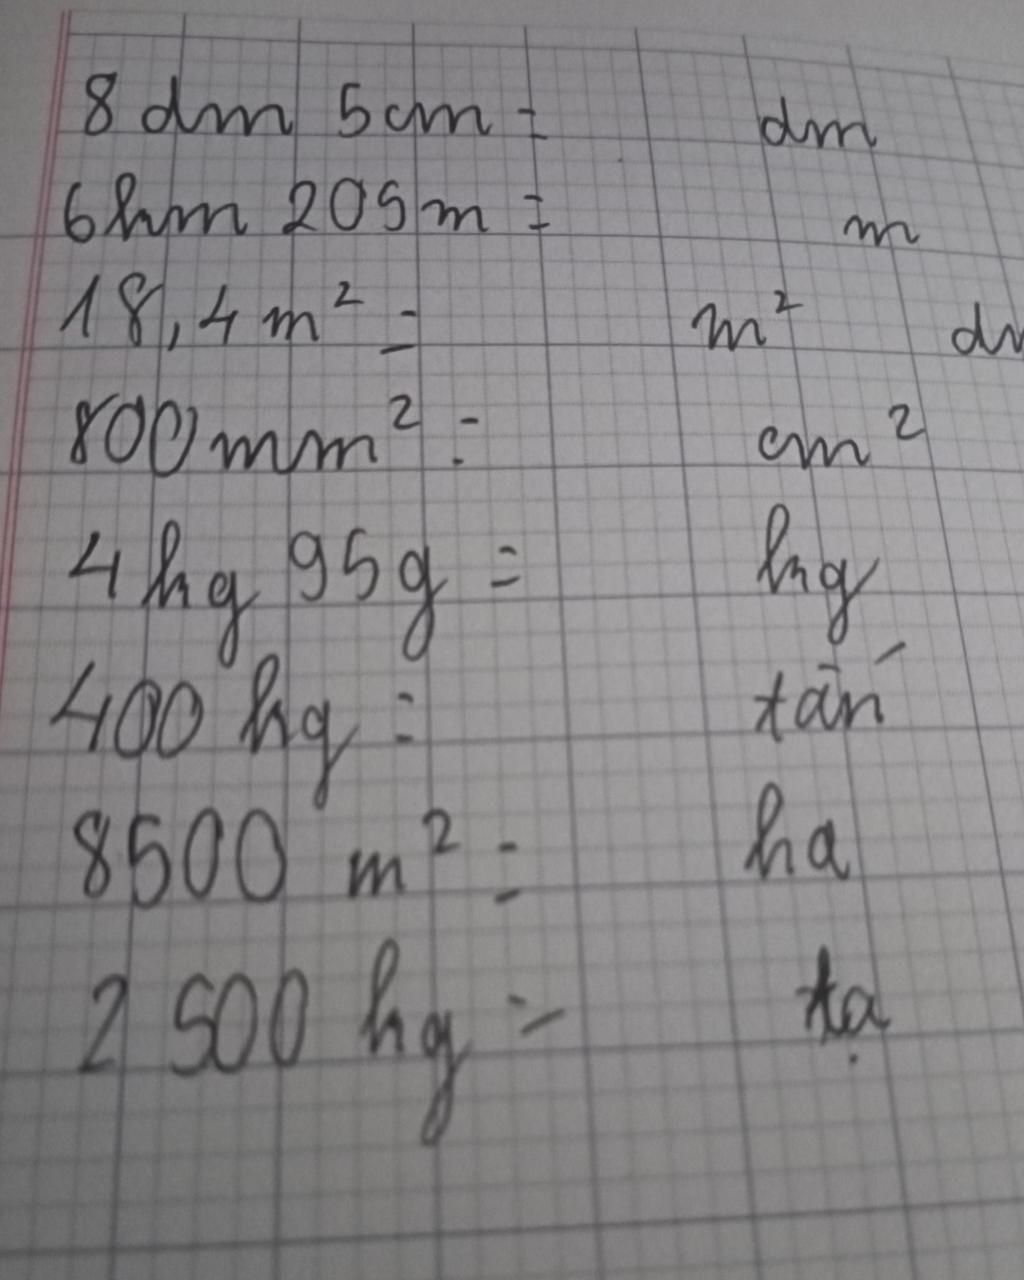 8 dm 5cm = dm
6km 205m = m
18,4 m² = m²
800mm² = cm²
4kg 95g = kg
400 kg = tấn
8500 m² = ha
2 500 kg = tạ